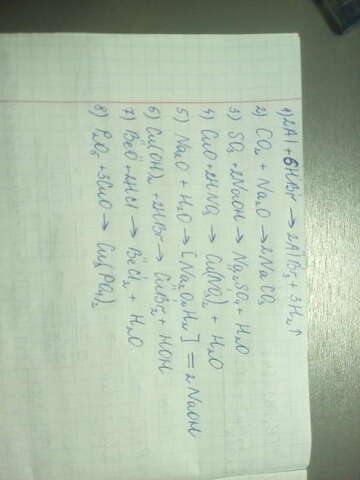 1) 2Al + 6HBr → 2AlBr₃ + 3H₂↑
2) CO₂ + Na₂O → Na₂CO₃
3) SO₃ + 2NaOH → Na₂SO₄ + H₂O
4) CuO + 2HNO₃ → Cu(NO₃)₂ + H₂O
5) Na₂O + H₂O → [Na₂O₂H₂] = 2NaOH
6) Cu(OH)₂ + 2HBr → CuBr₂ + HOH
7) BeO + 2HCl → BeCl₂ + H₂O
8) P₂O₅ + 3CuO → Cu₃(PO₄)₂